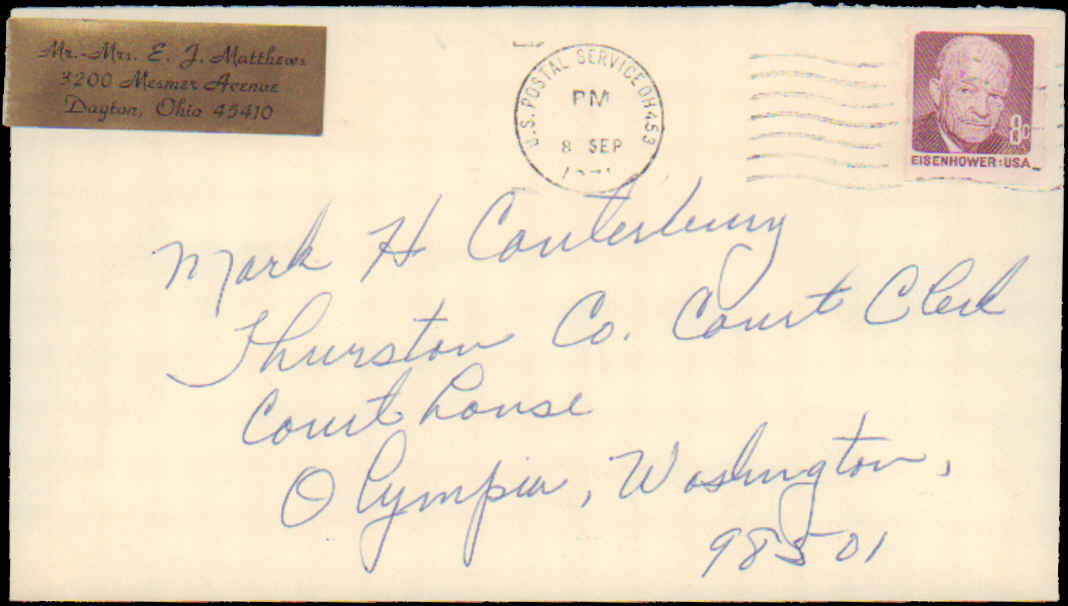 Mr.-Mrs. E. J. Matthews
3200 Mesmer Avenue
Dayton, Ohio 45410
U.S. POSTAL SERVICE OH 453
PM
8 SEP
8c
EISENHOWER·USA
Mark H Canterbury
Thurston Co. Court Clerk
Court house
Olympia, Washington,
98501